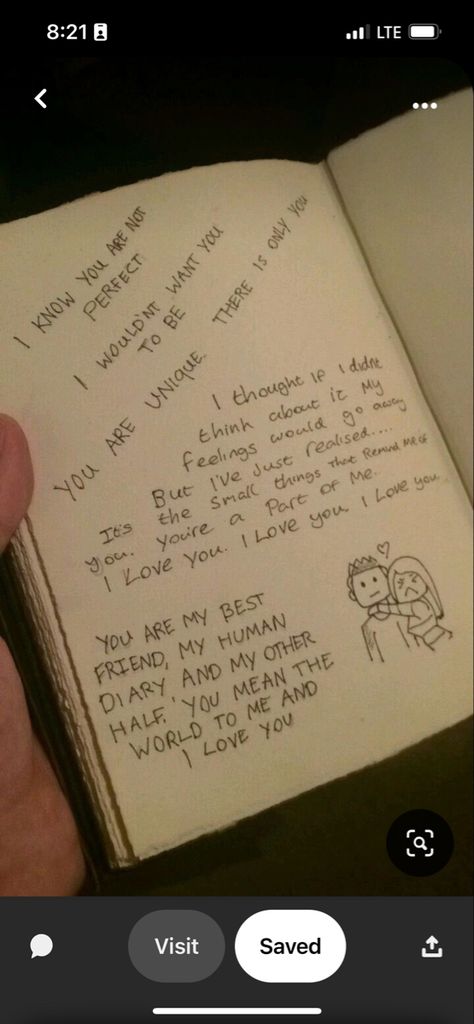 8:21
LTE
I KNOW YOU ARE NOT
PERFECT
I WOULD'NT WANT YOU
TO BE
YOU ARE UNIQUE. THERE IS ONLY YOU
I thought if I didnt
think about it my
feelings would go away
But I've just realised....
It's the small things that Remind me of
you. you're a Part of Me.
I Love you. I Love you. I Love you.
YOU ARE MY BEST
FRIEND, MY HUMAN
DIARY, AND MY OTHER
HALF. YOU MEAN THE
WORLD TO ME AND
I LOVE YOU
Visit
Saved